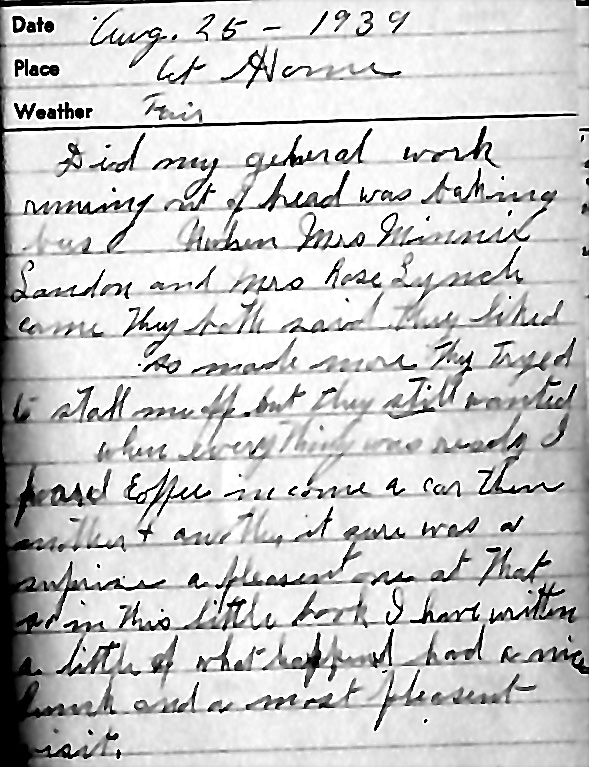 Date Aug. 25 - 1939
Place At Home
Weather Fair
Did my general work
running out of bread was baking
when Mrs Minnie
Landon and Mrs Rose Lynch
came They both said they liked
so made more They tryed
to stall me off but they still wanted
when everything was ready I
Coffee in come a car then
another + another it sure was a
suprise a pleasent one at That
so in This little book I have written
a little of what happend had a nice
lunch and a most pleasent
visit.